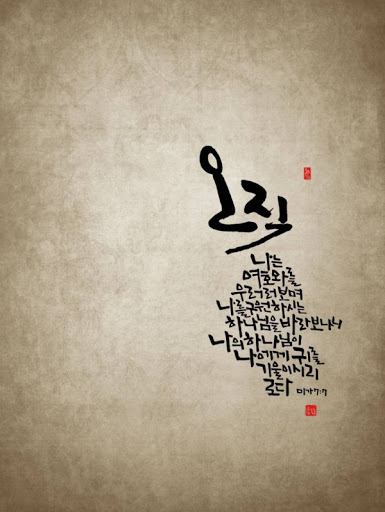 오직
나는
여호와를
우러러보며
나를구원하시는
하나님을바라보나니
나의하나님이
나에게 귀를
기울이시리
로다 미가7:7